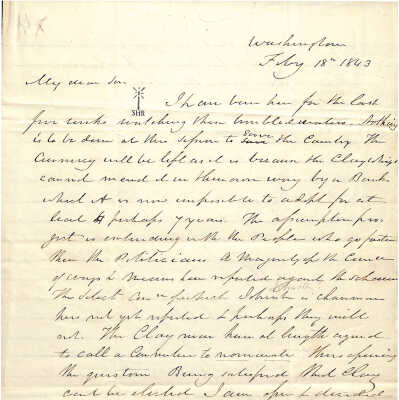 Washington
Feby 18th 1843
My dear Sir,
SHR
I have been here for the last
few weeks watching these troubled waters. Nothing
is to be done at this session to save the Country. The
Currency will be left as it is because the Clay Whigs
cannot mend it in their own way by a Bank
which it is now impossible to adopt for at
least 4 perhaps 7 years. The assumption pro-
ject is with the People who go faster
than the Politicians. A Majority of the Comee
of ways & Means have reported against the scheme
The Select Comee of which Johnson is chairman
have not yet reported & perhaps they will
not. The Clay men have at length agreed
to call a Convention to nominate thus opening
the question. Being satisfied that Clay
can't be elected I am open & decided